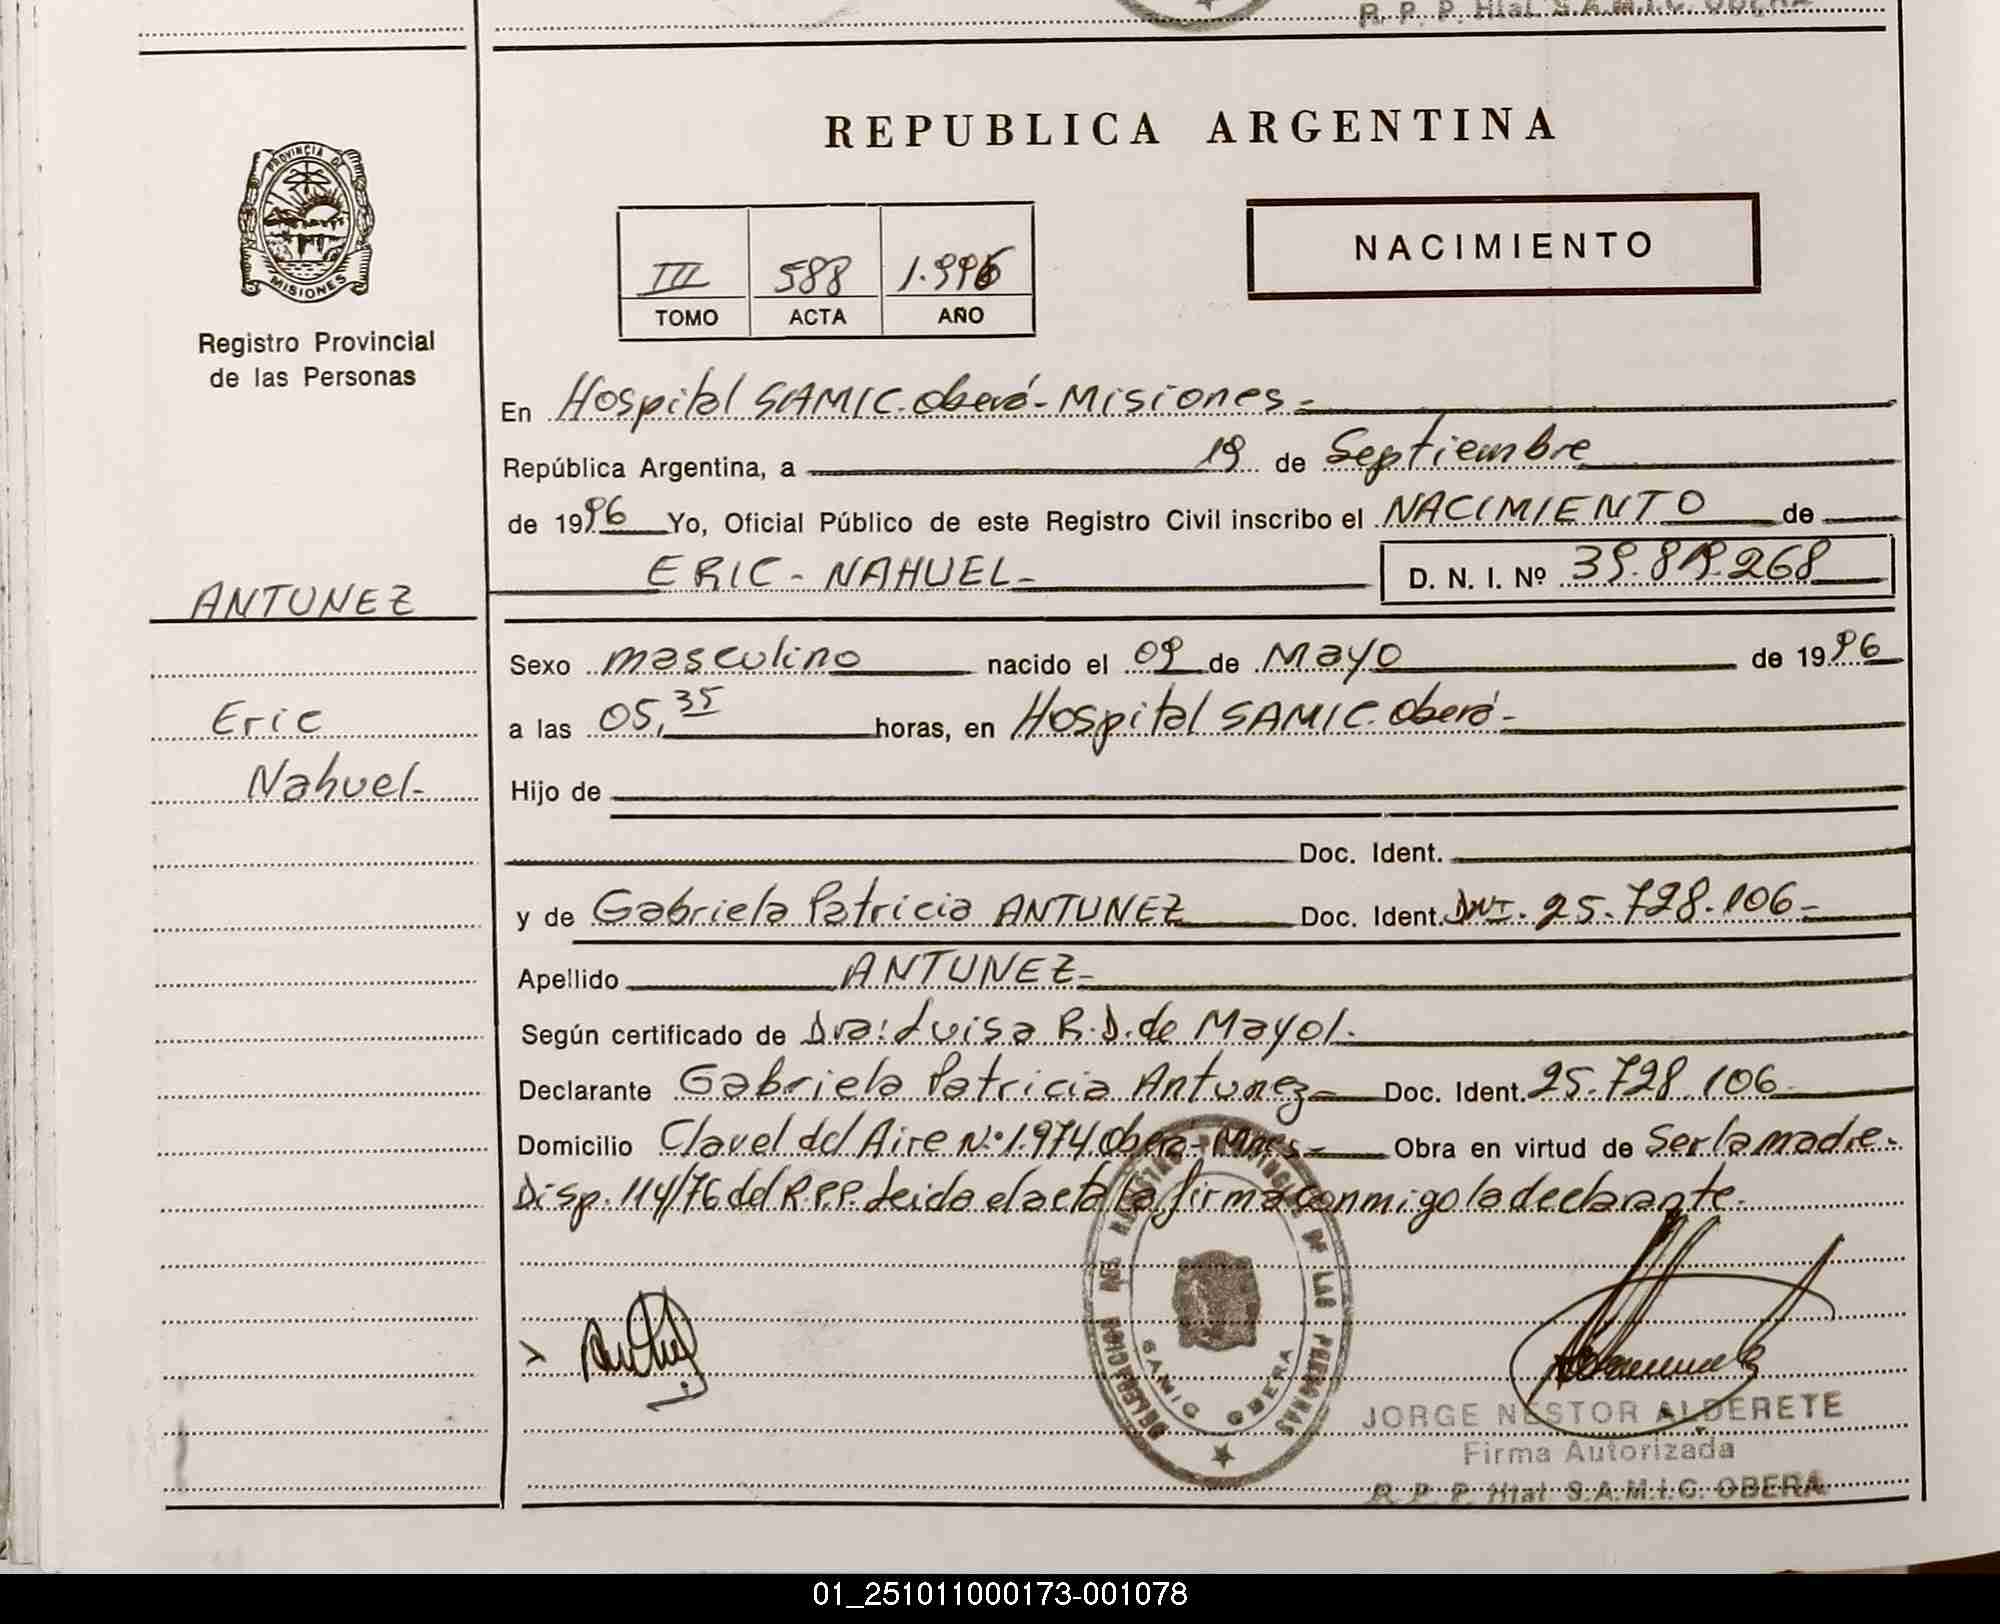 R. P. P. Htal. S.A.M.I.C. OBERA
REPUBLICA ARGENTINA
PROVINCIA DE
MISIONES
Registro Provincial
de las Personas
III 588 1.996
TOMO ACTA AÑO
NACIMIENTO
En Hospital SAMIC. Oberá - Misiones -
República Argentina, a 19 de Septiembre
de 1996 Yo, Oficial Público de este Registro Civil inscribo el NACIMIENTO de
ERIC - NAHUEL - D. N. I. Nº 39.819.268
ANTUNEZ
Eric
Nahuel -
Sexo masculino nacido el 09 de Mayo de 1996
a las 05,35 horas, en Hospital SAMIC. Oberá -
Hijo de
Doc. Ident.
y de Gabriela Patricia ANTUNEZ Doc. Ident. DNI. 25.728.106 -
Apellido ANTUNEZ -
Según certificado de Dra: Luisa R. D. de Mayol.
Declarante Gabriela Patricia Antunez - Doc. Ident. 25.728.106
Domicilio Clavel del Aire N.º 1.974 Oberá - Mnes - Obra en virtud de Ser la madre.
Disp. 114/76 del R.P.P. Leida el acta la firma conmigo la declarante.
DELEGACION DEL REGISTRO PROVINCIAL DE LAS PERSONAS
SAMIC OBERA
JORGE NESTOR ALDERETE
Firma Autorizada
R. P. P. Htal. S.A.M.I.C. OBERA
01_251011000173-001078